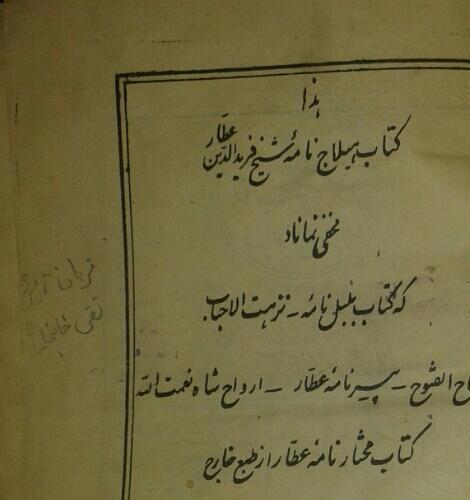 هذا
کتاب هیلاج نامهٔ شیخ فریدالدین عطّار
مخفی نماناد
که کتاب بلبل نامه ـ نزهت الاحباب
الفتوح ـ پسر نامهٔ عطار ـ ارواح شاه نعمت الله
کتاب مختار نامهٔ عطار از طبع خارج